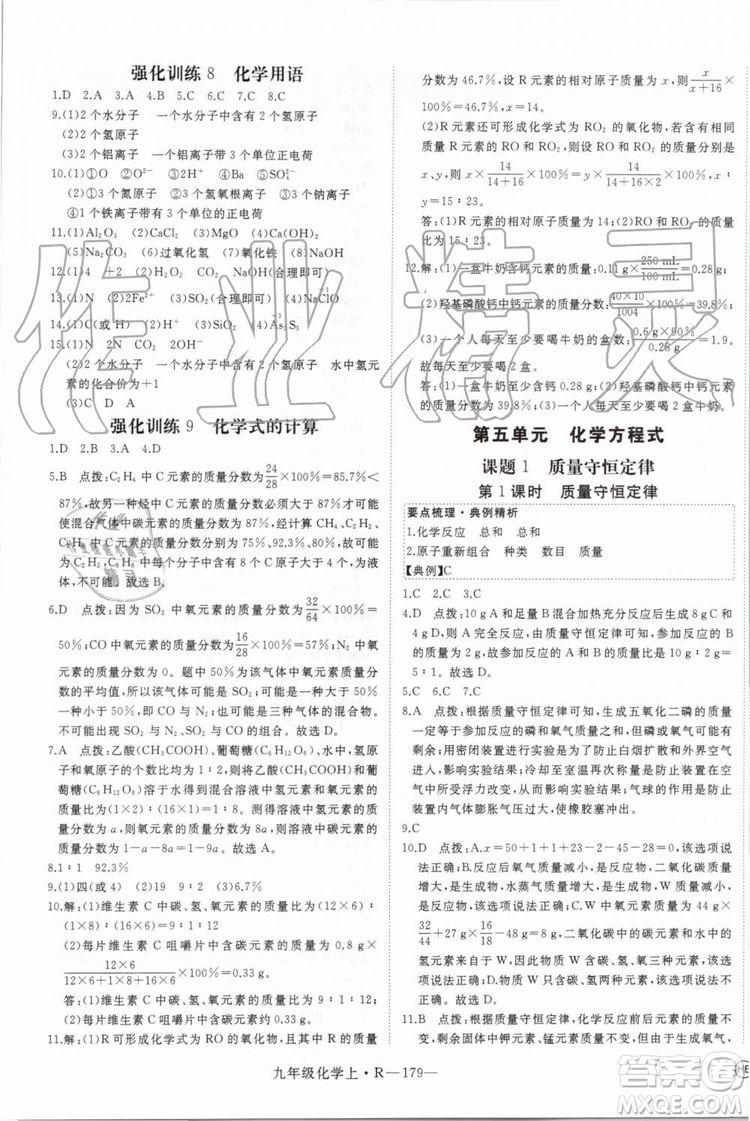 强化训练 8 化学用语
1.D 2.A 3.A 4.B 5.C 6.D 7.C 8.C
9.(1)2 个水分子 一个水分子中含有 2 个氢原子
(2)2 个氢原子
(3)2 个铝离子 一个铝离子带 3 个单位正电荷
10.(1)①O ②H⁺ ③H₂O ④Ba ⑤SO₄²⁻
(2)①3 个氢分子 ②3 个氢氧根离子 ③钠离子
④1 个铁离子带 3 个单位正电荷
11.(1)Al₂O₃ (2)CaCl₂ (3)MgO (4)Ca(OH)₂
(5)Na₂CO₃ (6)过氧化氢 (7)氯化铁 (8)NaOH
12.(1)4 +2 (2)化合反应 氧化反应
13.(1)N (2)2Fe²⁺ (3)SO₂ (4)NaClO
14.(1)C(或 H) (2)N (3)O₃ (4)As₂S₃
15.(1)NaOH
(2)2 个水分子 一个水分子中含有 2 个氢原子 水中氢元
素的化合价为+1
(3)C D A
强化训练 9 化学式的计算
1.D 2.B 3.A 4.D
5.B 点拨：C₂H₄ 中 C 元素的质量分数为 24/28 ×100%=85.7%<
87%，故另一种烃中 C 元素的质量分数必须大于 87%，才能使
混合气体中碳元素的质量分数为 87%，经计算 CH₄、C₂H₂、
C₂H₆、C₃H₆ 中 C 元素的质量分数分别为 75%、92.3%、80%、
85.7%，B 符合题意。一个分子中含有 8 个 C 原子时，为液
体，不为气体，故不选 D。
6.D 点拨：因为 SO₂ 中氧元素的质量分数为 32/64 ×100%=
50%；CO 中氧元素的质量分数为 16/28 ×100%=57%；N₂ 中
氧元素的质量分数为 0。题中 50%为该气体中氧元素质量分
数的平均值，所以该气体可能是这三种气体的混合物。
不可能出现 SO₂ 与 N₂、SO₂ 与 CO 的混合。故选 D。
7.A 点拨：乙酸(CH₃COOH)、葡萄糖(C₆H₁₂O₆)、水中，氢原子
和氧原子的个数比都为 2∶1，所以由乙酸(CH₃COOH)和葡
萄糖(C₆H₁₂O₆)形成的水溶液中氢元素和氧元素的质量比为
(1×2)∶(16×1)=1∶8，测得溶液中氢元素的
质量分数为 a，则氧元素的质量分数为 8a，则溶液中碳元素的质量分数为
1－a－8a=1－9a。故选 A。
8.1∶1 92.3%
9.(1)四(或 4) (2)19 9∶2 (3)6.7%
10.解：(1)维生素 C 中碳、氢、氧元素的质量比为(12×6)∶
(1×8)∶(16×6)=9∶1∶12。
(2)每片维生素 C 咀嚼片中含碳元素的质量为 0.8 g×
12×6/(12×6+1×8+16×6) ≈0.33 g。
答：(1)维生素 C 中碳、氢、氧元素的质量比为 9∶1∶12。
(2)每片维生素 C 咀嚼片中含碳元素的质量约为 0.33 g。
11.解：(1)R 可形成化学式为 RO 的氧化物，且其中 R 的质量
分数为 46.7%，设 R 元素的相对原子质量为 x，则 x/(x+16) ×
100%=46.7%，解得 x=14。
(2)R 元素还可形成化学式为 RO₂ 的氧化物，若 RO 和
RO₂ 中 R 元素的质量相等，则 RO 和 RO₂ 的质量分别是
m x× 14/(14+16) ×100%=y× 14/(14+16×2) ×100%，x∶y=
15∶23。
答：(1)R 元素的相对原子质量为 14；(2)RO 和 RO₂ 的质量
比为 15∶23。
12.解：(1)一盒牛奶含钙元素的质量：0.11 g× 250 mL/100 mL =0.28 g；
(2)羟基磷酸钙中钙元素的质量分数：40×10/1004 ×100%=39.8%；
(3)一个人每天至少要喝牛奶的盒数：0.6 g×90%/0.28 g =1.9。
故一个人每天至少要喝 2 盒。
答：(1)一盒牛奶中含钙 0.28 g；(2)羟基磷酸钙中钙元素的
质量分数为 39.8%；(3)一个人每天至少要喝 2 盒牛奶。
第五单元 化学方程式
课题 1 质量守恒定律
第 1 课时 质量守恒定律
要点梳理·典例精析
1.化学反应 总和 总和
2.原子重新组合 种类 数目 质量
【典例】C
1.C 2.C 3.C
4.D 点拨：10 g A 和足量 B 混合加热充分反应生成 8 g C 和
4 g D，A 完全反应，由质量守恒定律可知，参加反应的 B
的质量为 8 g+4 g－10 g=2 g，参加反应的 A 与 B 的质量比为
5∶1。故选 D。
5.C 6.C 7.C
8.A 点拨：根据质量守恒定律可知，生成五氧化二磷的质量
一定等于参加反应的磷和氧气质量之和，因为氧气可能有
剩余；用锥形瓶密闭进行实验是为了防止白烟扩散和外界空气进
入，影响实验结果；冷却至室温再次称量是为了防止锥形瓶在空
气中所受浮力变化，影响实验结果；气球的作用是防止
装置内气体膨胀产生压力，使橡胶塞冲出。
9.C
10.D 点拨：A.x=50+1+1+23－2－45－28=0，该选项说
法正确；B.反应后，氧气质量减小，是反应物，二氧化碳质量
增大，是生成物，水蒸气质量增大，是生成物，该选项说法正
确；C.反应后，氧气质量减小，是反应物，A 物质质量减小，
是反应物，该选项说法正确；D.A 物质中氧元素质量：44 g×
32/44 +27 g× 16/18 －56 g=0，二氧化碳中的碳元素和水中的
氢元素来自于 A 物质，因此 A 物质中含有碳、氢元素，不含
有氧元素，该选项说法不正确。故选 D。
11.B 点拨：根据质量守恒定律，化学反应前后元素的质量不
变，剩余固体中钾元素、锰元素质量不变，氧元素质量减少。
九年级化学上·R—179—